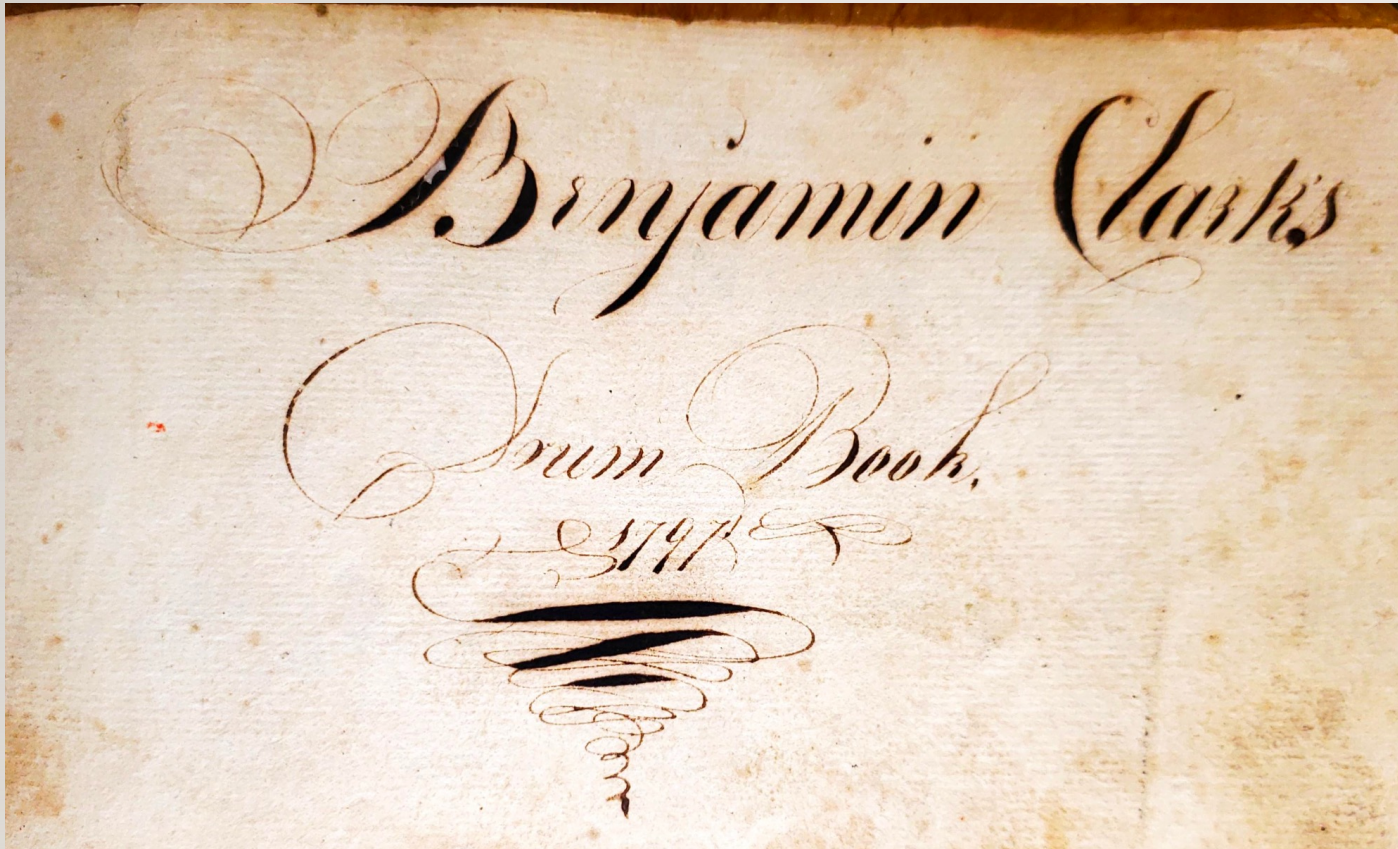 Benjamin Clark's
Drum Book.
1797